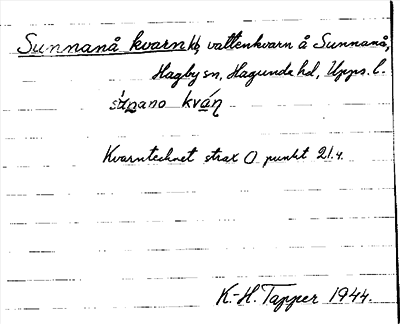 Sunnanå kvarn kb, vattenkvarn å Sunnanå,
Hagby sn, Hagunda hd, Upps. l.
súnano kván
Kvarntecknet strax O punkt 21.4.
K.-H. Tapper 1944.